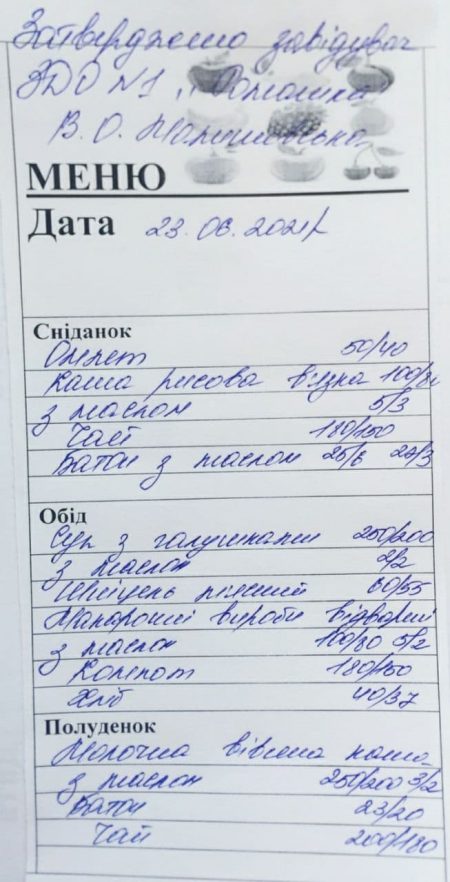 Затверджено завідувач
ЗДО №1 „Ромашка"
В.О.
МЕНЮ
Дата 23.06.2021р
Сніданок
Омлет 50/40
Каша рисова в'язка 100/80
з маслом 5/3
Чай 180/150
Батон з маслом 25/6 20/3
Обід
Суп з галушками 250/200
з маслом 2/2
Шніцель 60/55
Макаронні вироби відварні
з маслом 100/80 5/2
Компот 180/150
Хліб 40/37
Полуденок
Молочна вівсяна каша
з маслом 250/200 3/2
Батон 23/20
Чай 200/180